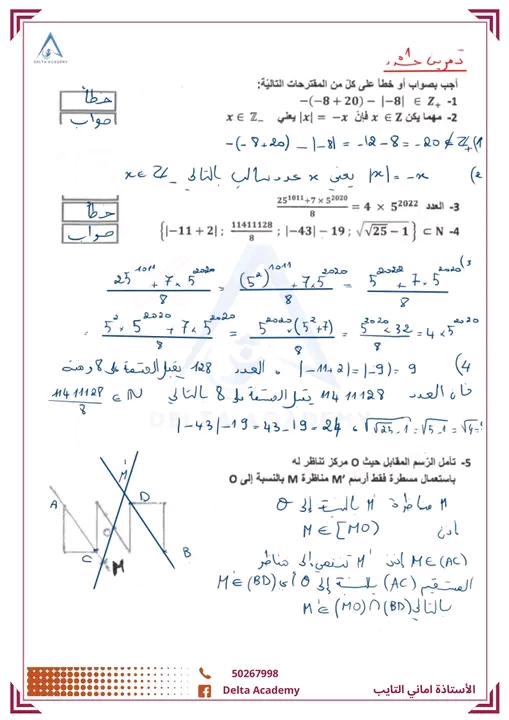 DELTA ACADEMY
تمرين عدد
أجب بصواب أو خطأ على كلّ من المقترحات التاليّة:
1- −(−8 + 20) − |−8| ∈ ℤ₊
خطأ
2- مهما يكن x ∈ ℤ فإنّ |x| = −x يعني x ∈ ℤ₋
صواب
1) −(−8+20) − |−8| = −12 − 8 = −20 ∉ ℤ₊
2) |x| = −x يعني x عدد سالب بالتالي x ∈ ℤ₋
3- العدد (25^1011 + 7 × 5^2020)/8 = 4 × 5^2022
خطأ
4- {|−11 + 2| ; 11411128/8 ; |−43| − 19 ; √(√25 − 1)} ⊂ ℕ
صواب
3) (25^1011 + 7 × 5^2020)/8 = ((5^2)^1011 + 7 × 5^2020)/8 = (5^2022 + 7 × 5^2020)/8
= (5^2 × 5^2020 + 7 × 5^2020)/8 = 5^2020 × (5^2 + 7)/8 = (5^2020 × 32)/8 = 4 × 5^2020
4) |−11+2| = |−9| = 9 ، العدد 128 يقبل القسمة على 8 ومنه
فإن العدد 11411128 يقبل القسمة على 8 بالتالي 11411128/8 ∈ ℕ
DELTA ACADEMY
|−43| − 19 = 43 − 19 = 24 ، √(√25 − 1) = √(5 − 1) = √4 =
5- تأمل الرّسم المقابل حيث O مركز تناظر له
باستعمال مسطرة فقط أرسم M′ مناظرة M بالنسبة إلى O
M′
A
D
O
C
B
M
M′ مناظرة M بالنسبة إلى O
إذن M′ ∈ [MO)
M ∈ (AC) إذن M′ تنتمي إلى مناظر
المستقيم (AC) بالنسبة إلى O أي M′ ∈ (BD)
بالتالي M′ ∈ (MO) ∩ (BD)
50267998
Delta Academy
الأستاذة اماني التايب